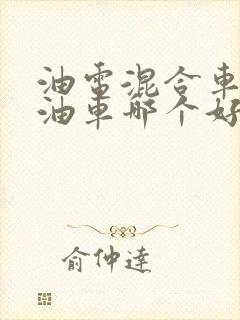 油電混合車
油車哪个好
俞仲達